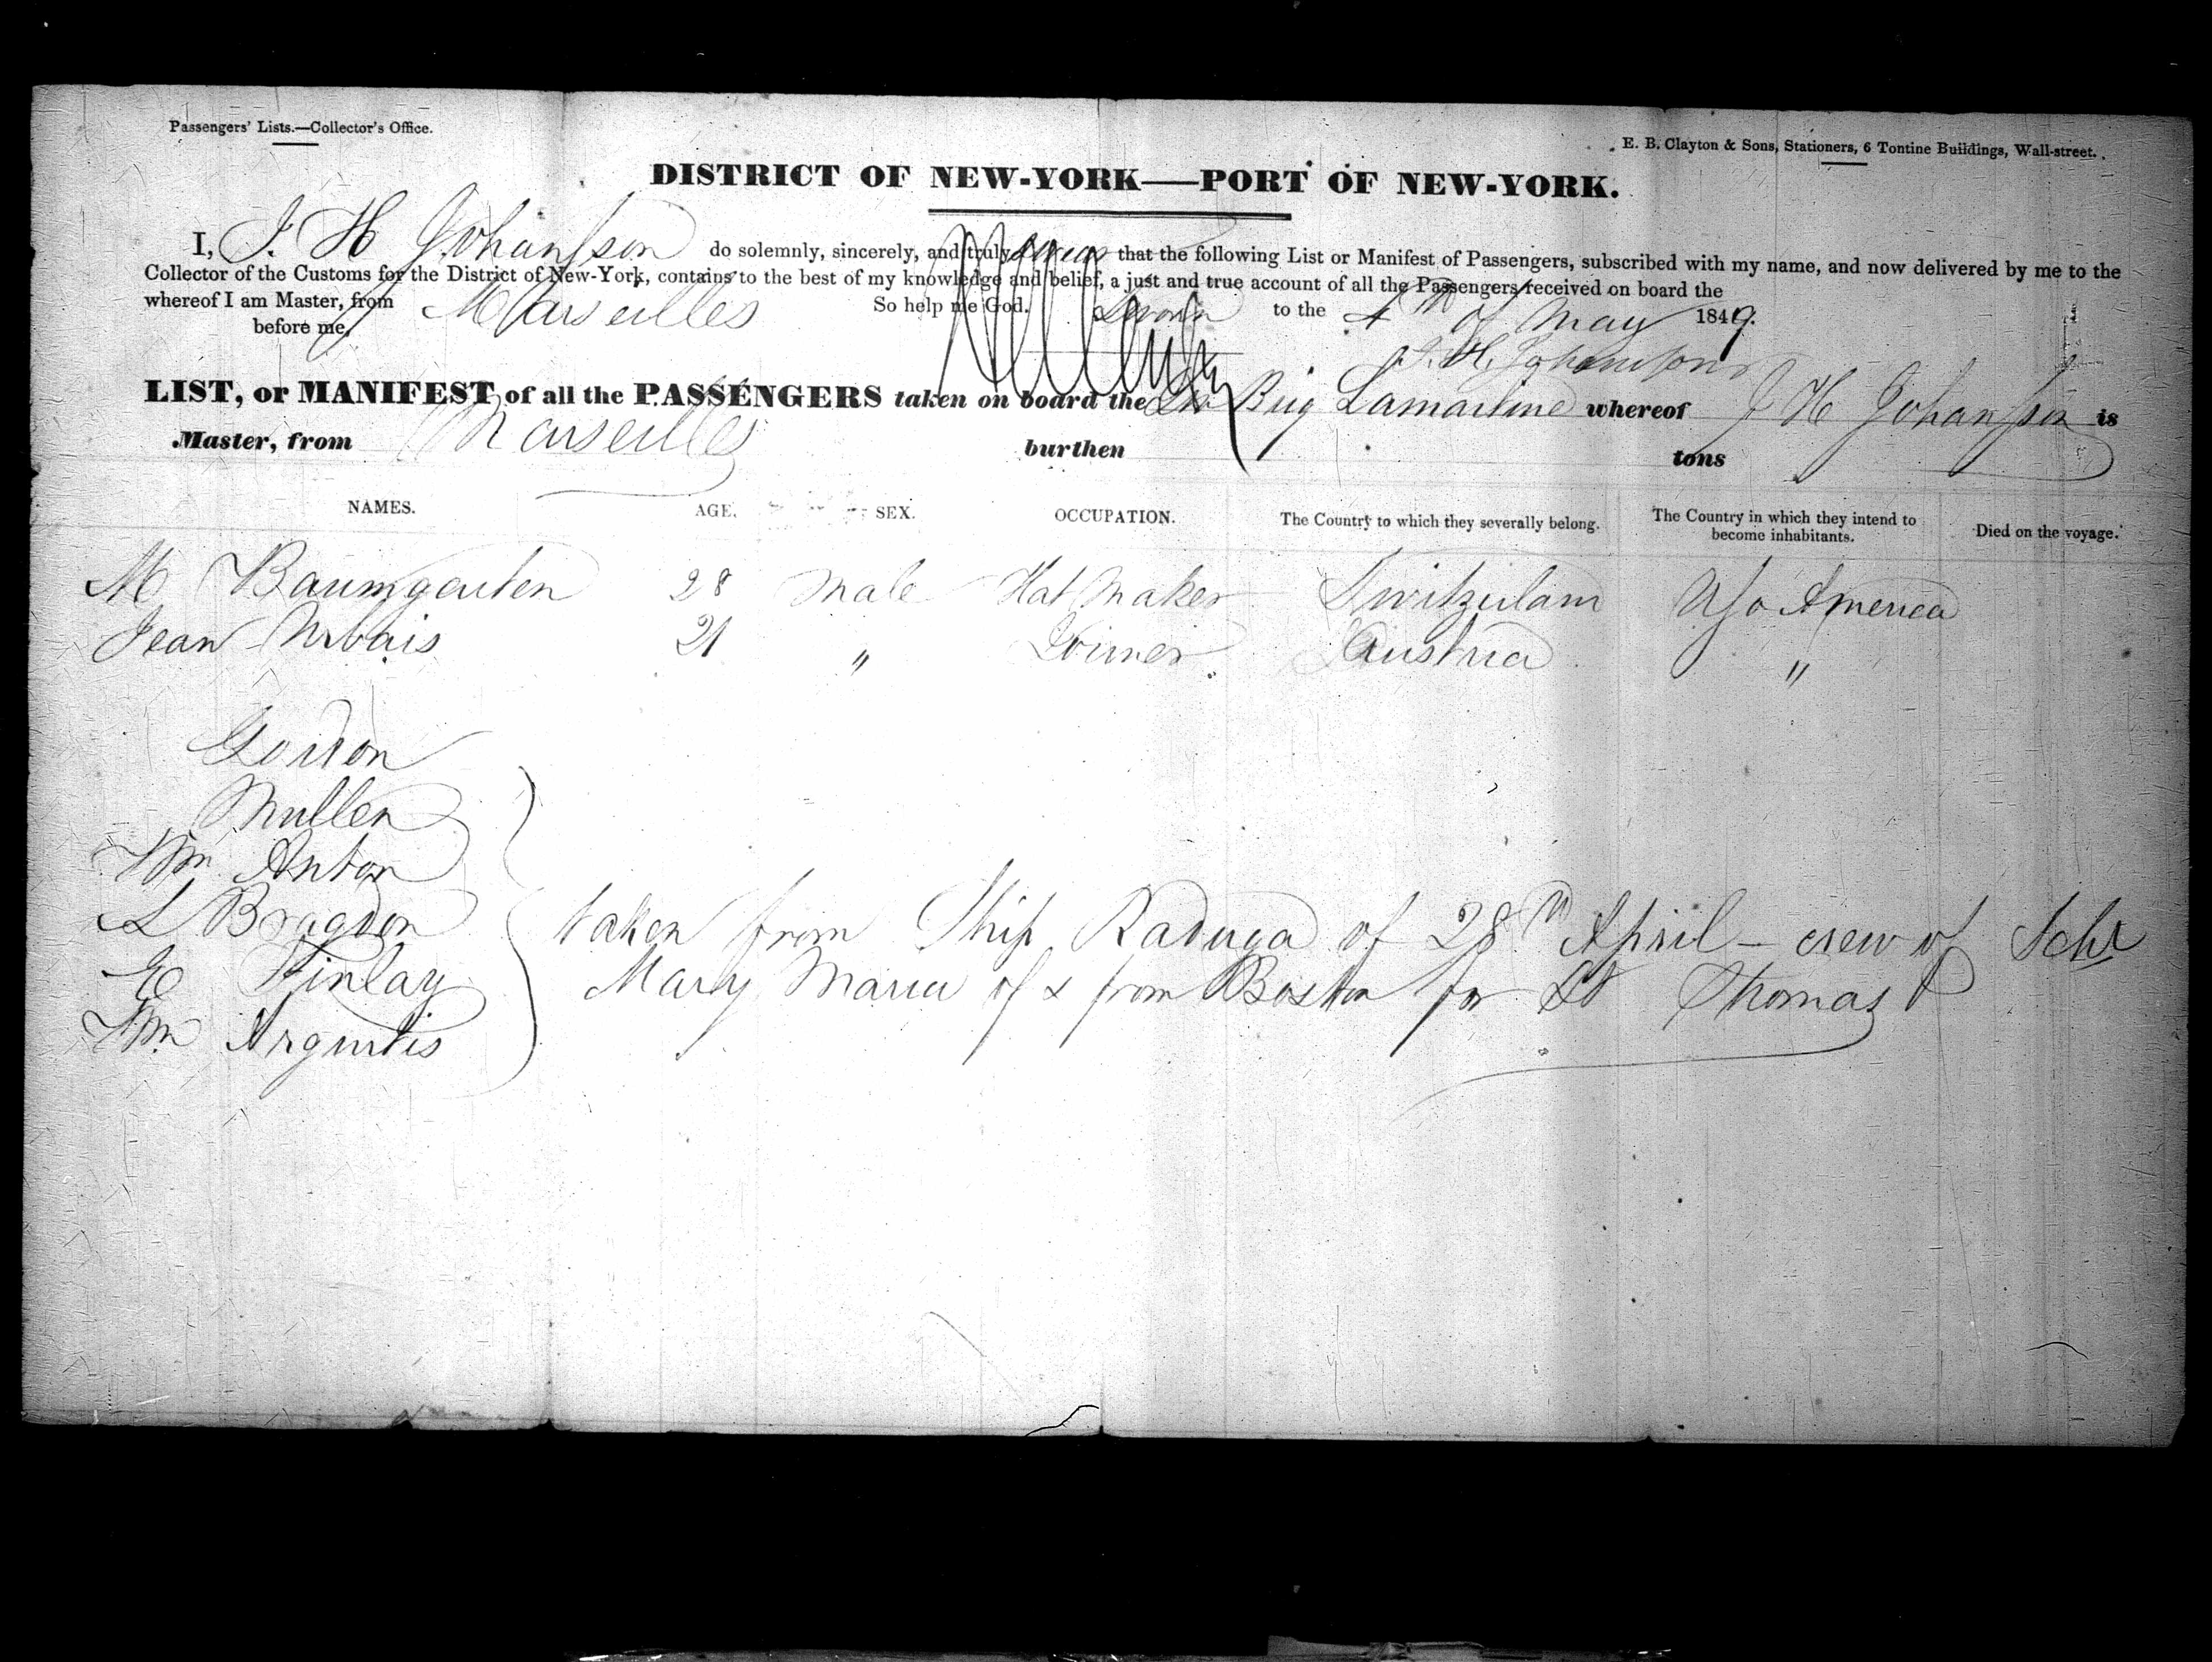 Passengers' Lists.—Collector's Office.
E. B. Clayton & Sons, Stationers, 6 Tontine Buildings, Wall-street.
DISTRICT OF NEW-YORK—PORT OF NEW-YORK.
I, J. H Johansson do solemnly, sincerely, and truly swear that the following List or Manifest of Passengers, subscribed with my name, and now delivered by me to the
Collector of the Customs for the District of New-York, contains to the best of my knowledge and belief, a just and true account of all the Passengers received on board the
whereof I am Master, from Marseilles So help me God. Sworn to the 4th of May 1849.
before me,
J. H. Johansson
LIST, or MANIFEST of all the PASSENGERS taken on board the Brig Lamartine whereof J H Johansson is
Master, from Marseilles burthen tons
NAMES. AGE. SEX. OCCUPATION. The Country to which they severally belong. The Country in which they intend to become inhabitants. Died on the voyage.
M Baumgarten 28 Male Hat Maker Switzerland Uso America
Jean 21 " Austria "
Gordon
Muller
Wm Anton
L Bragdon
E Finlay
Wm
taken from Ship Raduga of 28th April - crew of Schr
Mary Maria of & from Boston for St Thomas